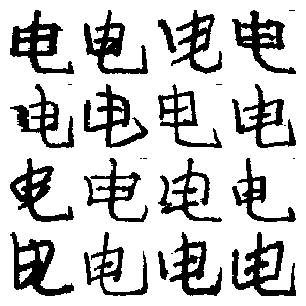 电电电电
电电电电
电电电电
电电电电